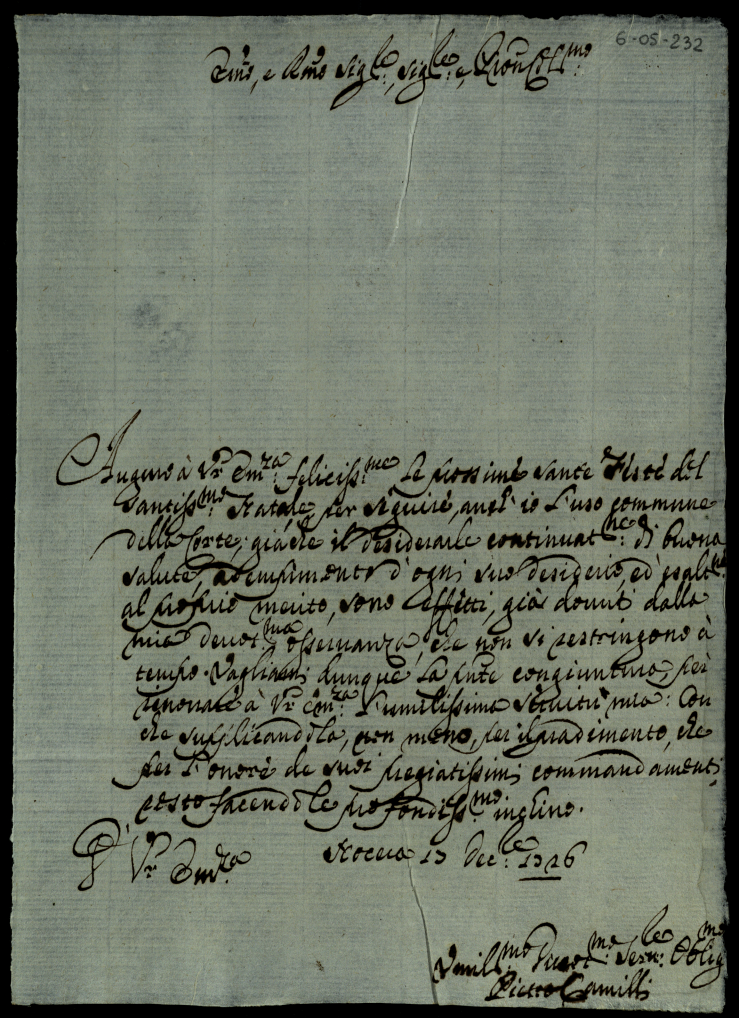 6-05-232
Em̃o, e Rm̃o Sig.re, Sig.re, e Pron Coll.mo
Auguro à Vr̃ Em.za feliciss.me le prossime Sante Feste del
Santiss.mo Natale, per seguire, anch'io l'uso commune
della Corte; giache il desiderarle continuat.ne di buona
salute, adempimento d'ogni suo desiderio, ed esalt.ne
al proprio merito, sono effetti, già dovuti dalla
mia devot.ma osservanza, che non si restringono à
tempo. Vagliami dunque la pn̄te congiuntura, per
rinovare à Vr̃ Em.za l'umilissima servitù mia: Con
che supplicandola, non meno, per il gradimento, che
per l'onore de suoi pregiatissimi commandamenti
resto facendole profondiss.mo inchino.
D' Vr̃ Em.za
Nocera 13 Dec.re 1726
Umil.mo Devot.mo Serv.re Oblig.mo
Pietro Camilli